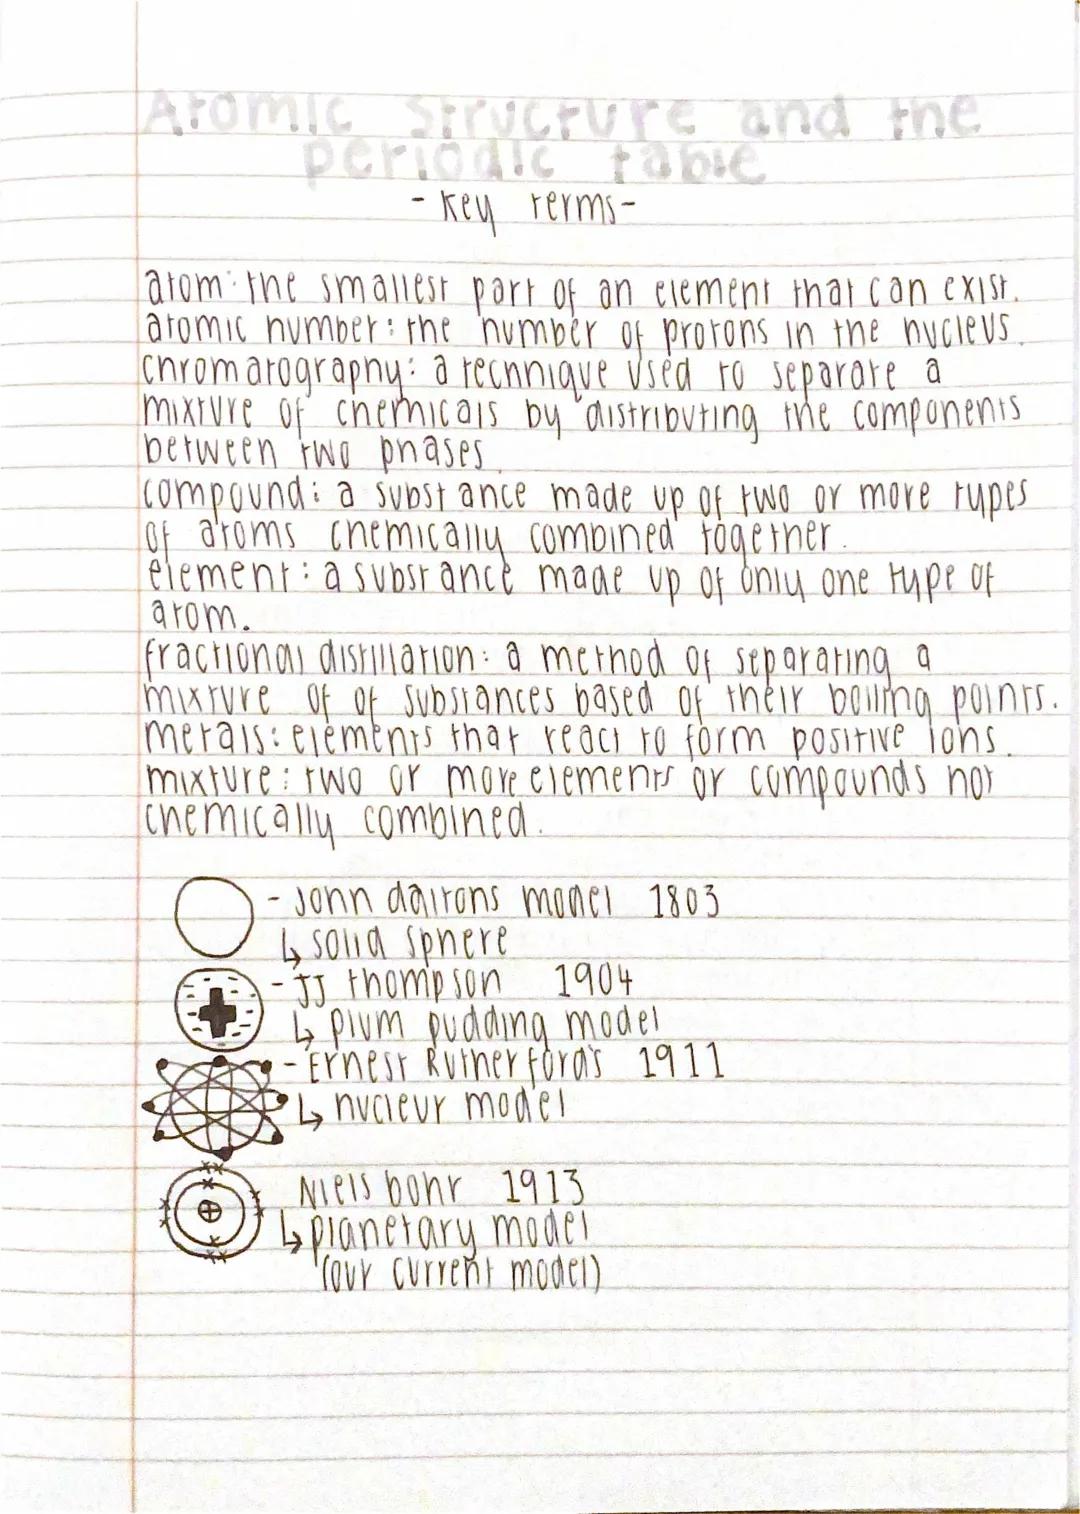 Atomic Structure and the
periodic table
- Key terms-
atom: the smallest part of an element that can exist.
atomic number: the number of protons in the nucleus.
chromatography: a technique used to separate a
mixture of chemicals by distributing the components
between two phases.
compound: a substance made up of two or more types
of atoms chemically combined together.
element: a substance made up of only one type of
atom.
fractional distillation: a method of separating a
mixture of of substances based of their boiling points.
metals: elements that react to form positive ions.
mixture: two or more elements or compounds not
chemically combined.
- John daltons model 1803
↳ solid sphere
- JJ thompson 1904
↳ plum pudding model
- Ernest Rutherford's 1911
↳ nucleur model
Niels bohr 1913
↳ planetary model
(our current model)